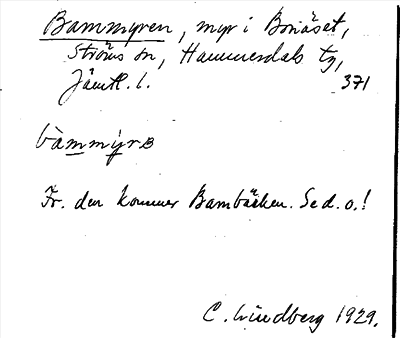 Bammyren, myr i Bonäset,
Ströms sn, Hammerdals tg,
Jämtl. l. 371
bàmmýrɞ
Fr. den kommer Bambäcken. Se d. o.!
C. Lindberg 1929.